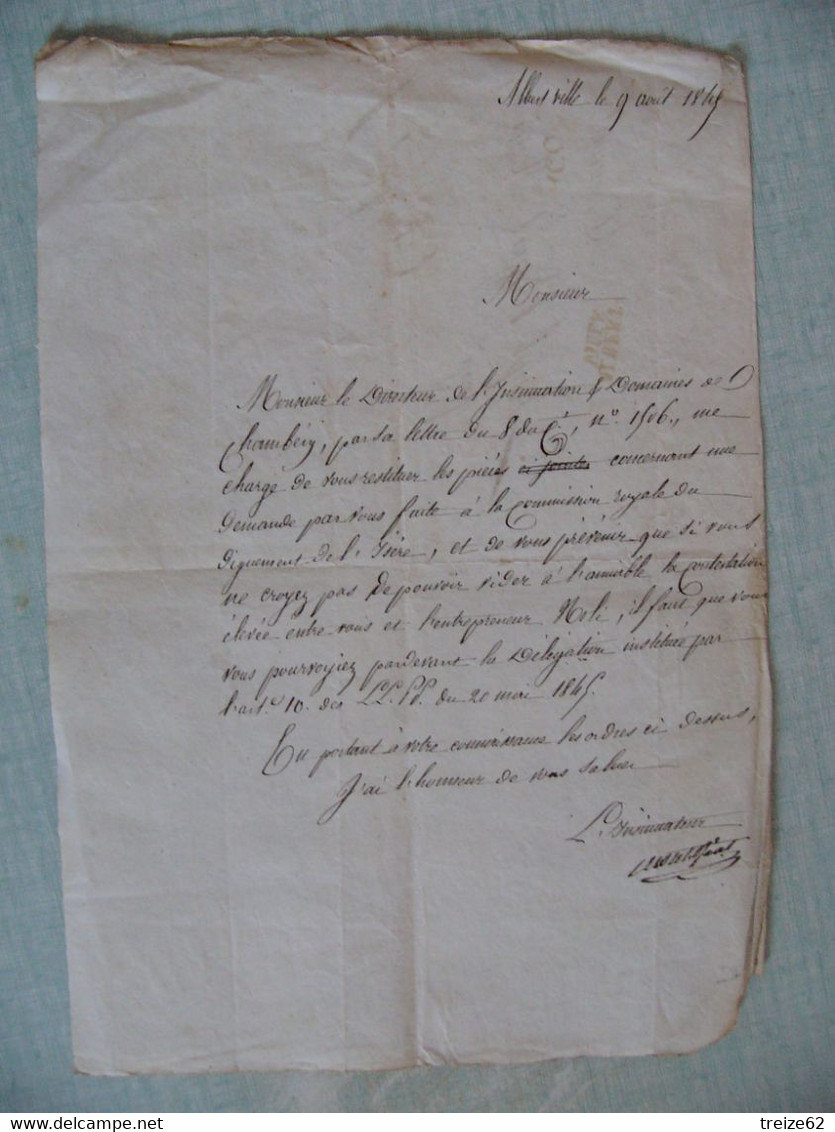 Albertville le 9 août 1845
Monsieur
Monsieur le Directeur de l'Insinuation & Domaines de
Chambéry, par sa lettre du 8 du Ct, n.o 1506., me
charge de vous restituer les pièces ci jointes concernant une
demande par vous faite à la Commission royale du
diguement de l'Isère, et de vous prévenir que si vous
ne croyez pas de pouvoir vider à l'amiable la contestation
élevée entre vous et l'entrepreneur Noli, il faut que vous
vous pourvoyiez pardevant la Délégation instituée par
l'art. 10. des LL. PP. du 20 mai 1845.
En portant à votre connaissance les ordres ci dessus,
J'ai l'honneur de vous saluer
L'Insinuateur
delcampe.net
treize62